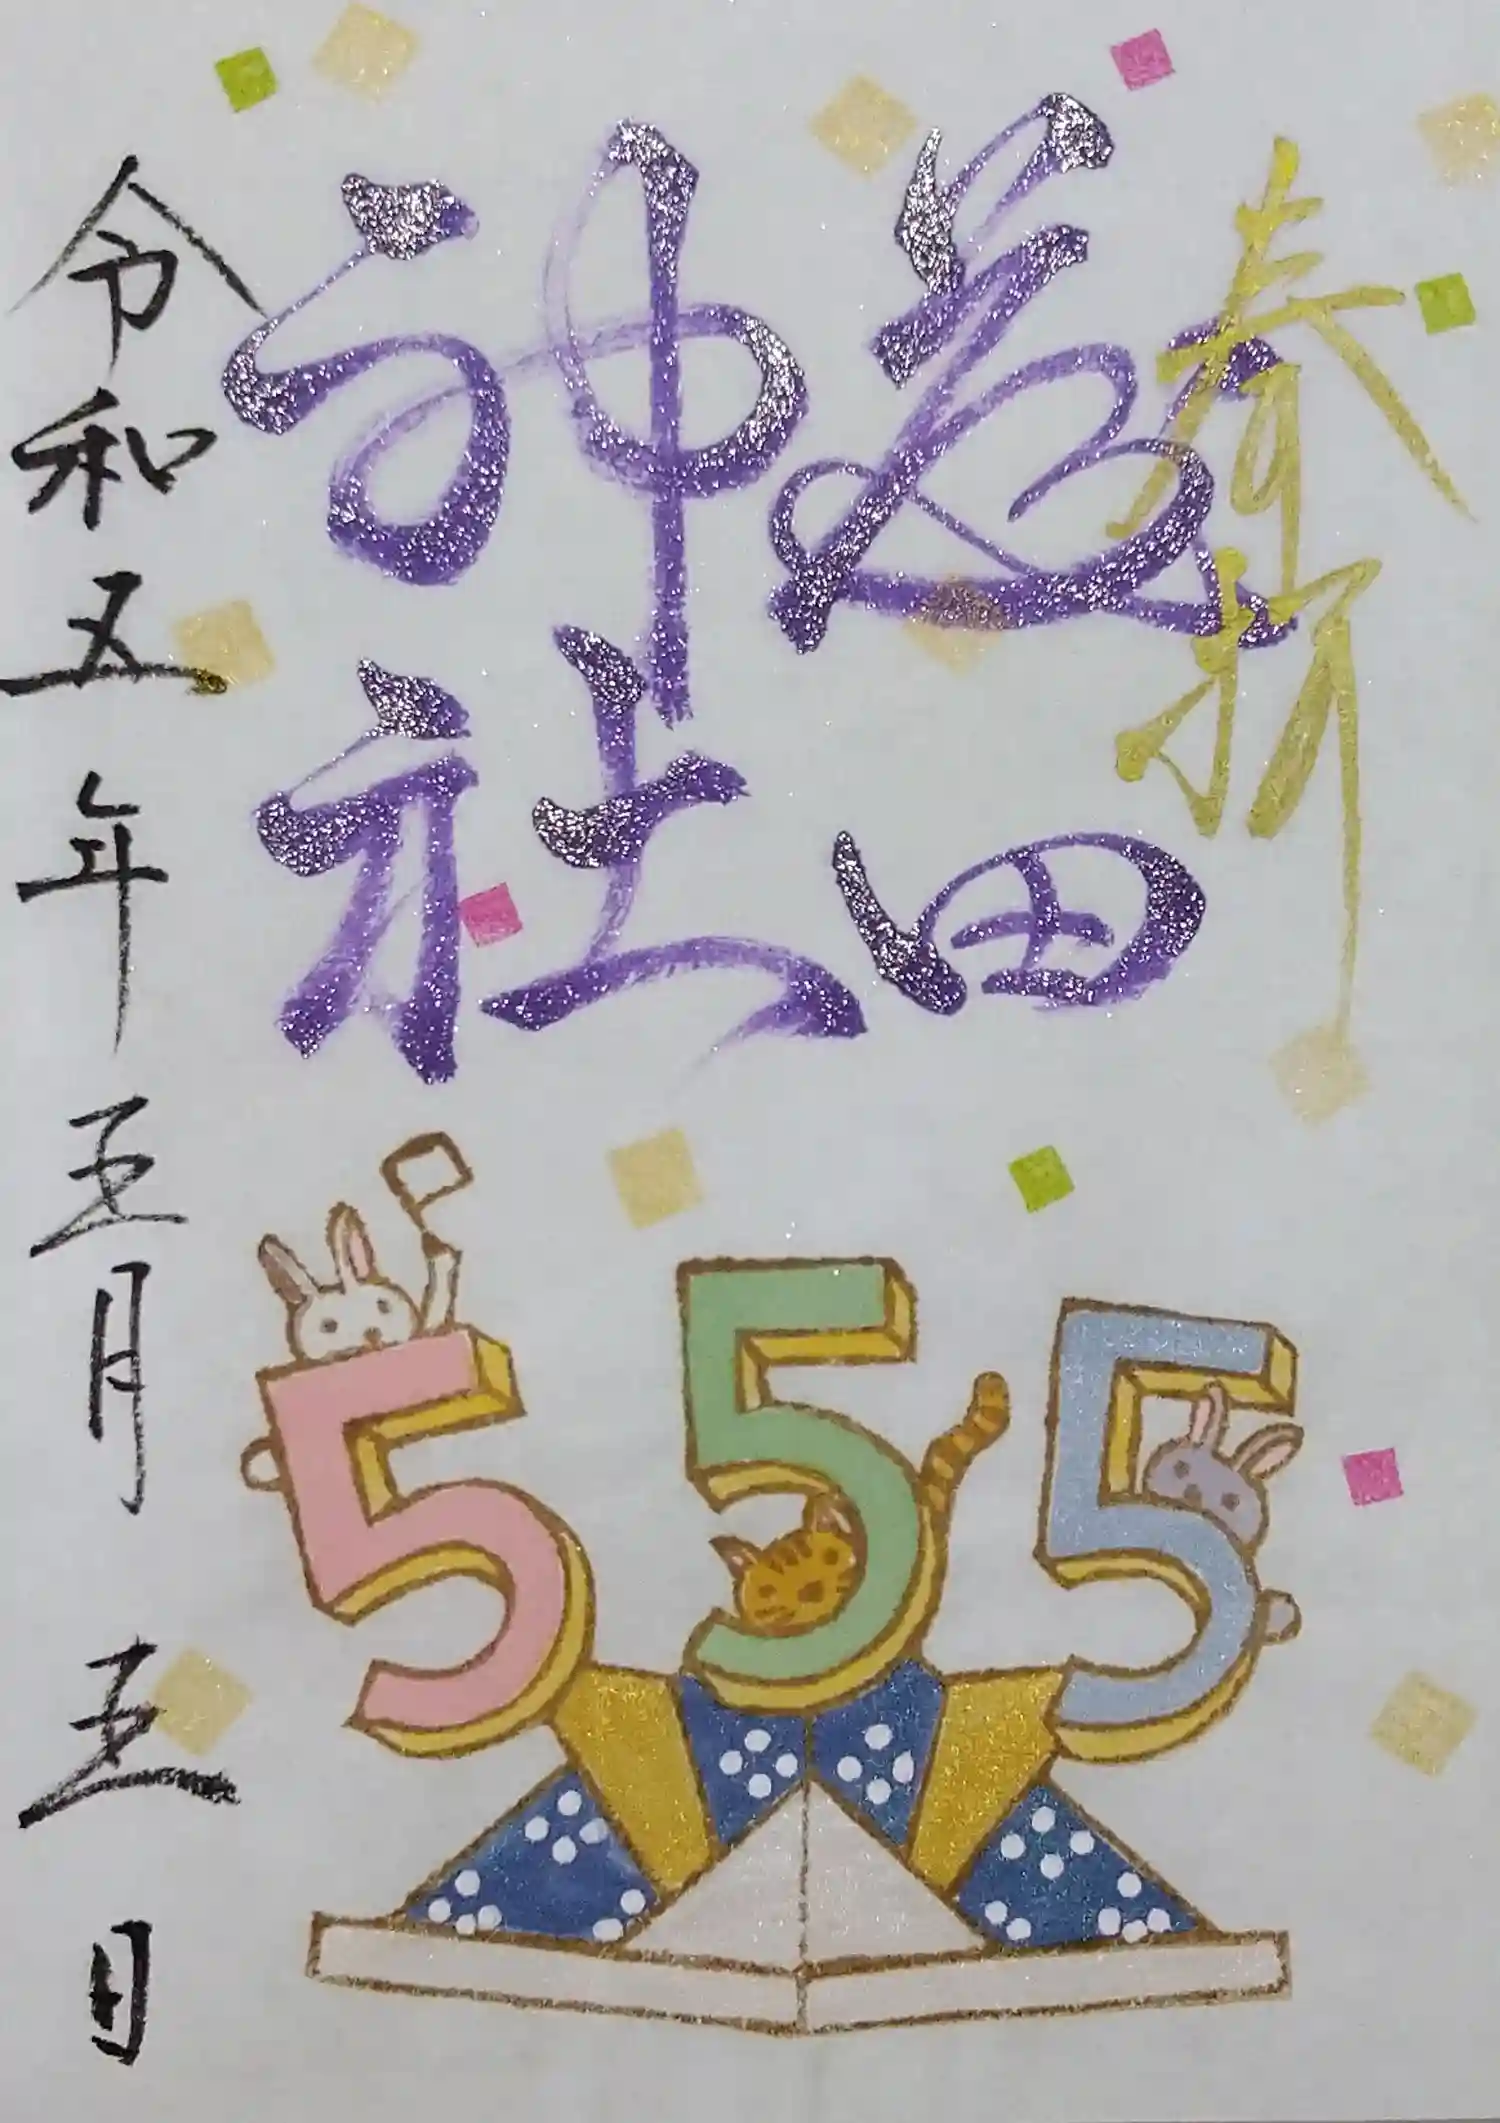 奉拝
田
神社
令和五年五月五日
555